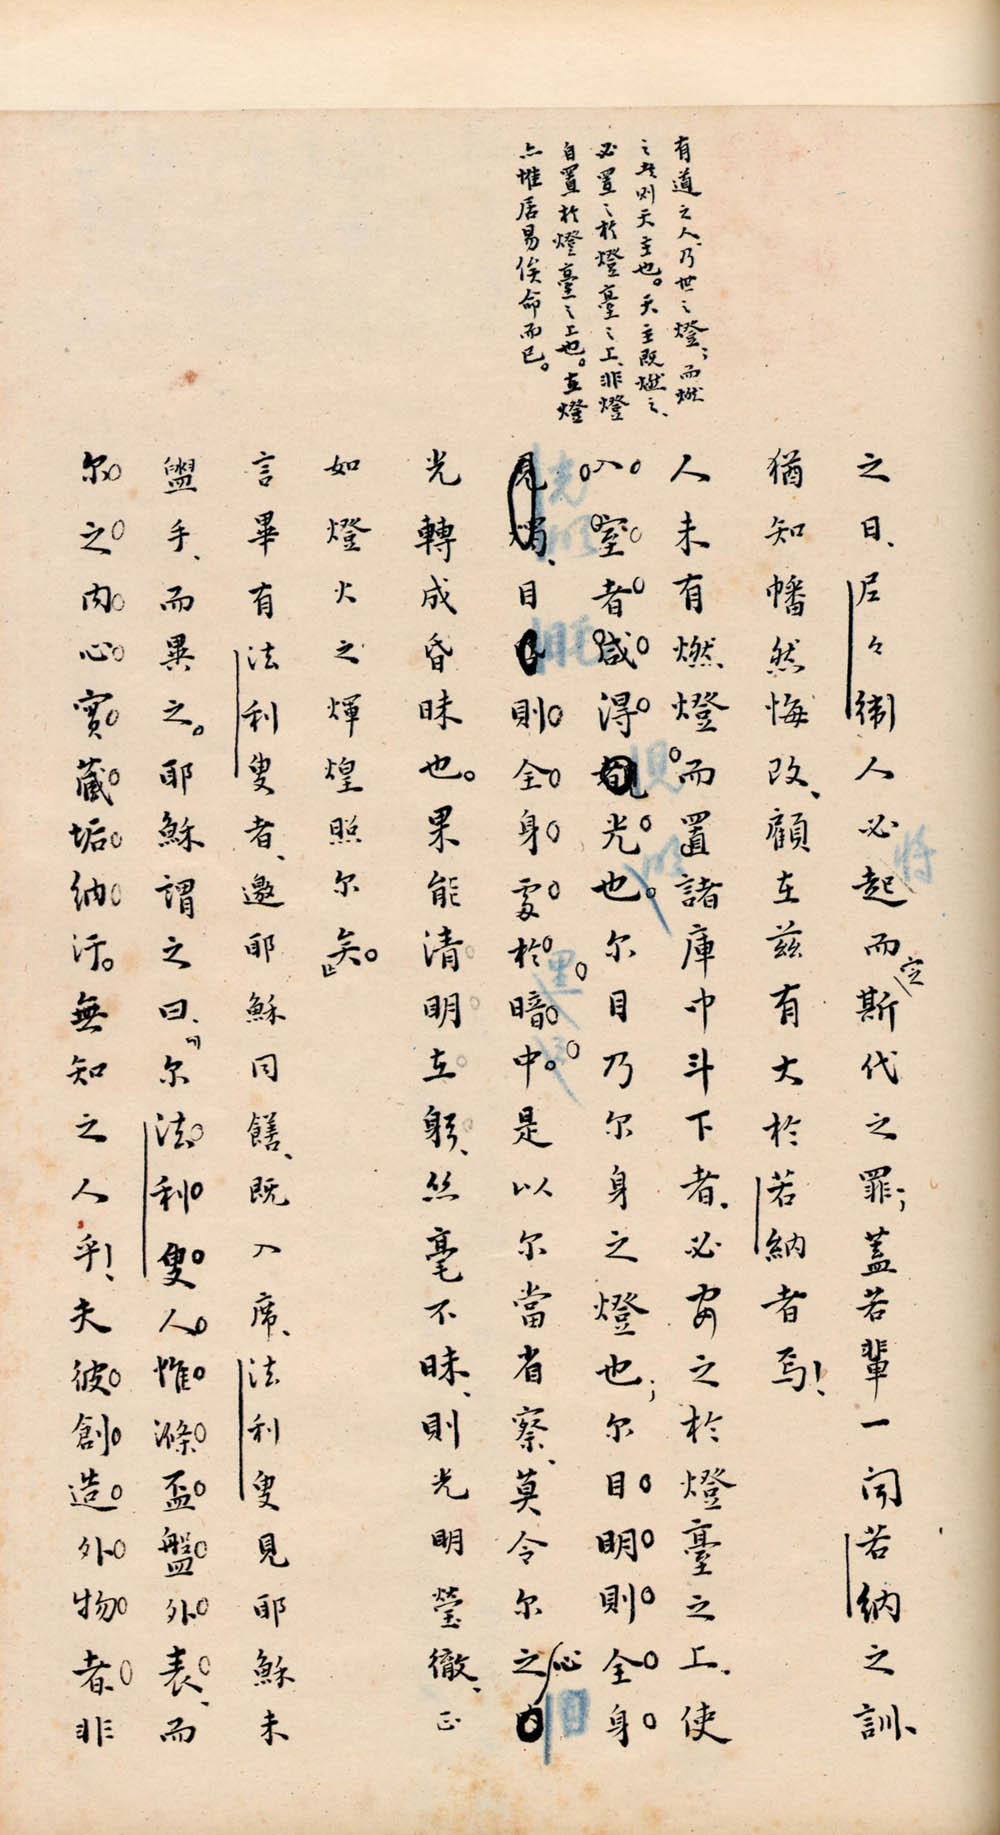 有道之人、乃世之燈；而燃
之者則天主也。天主既燃之、
必置之於燈臺之上、非燈
自置於燈臺之上也。在燈
亦惟居易俟命而已。
之日、尼々衛人必起而定斯代之罪；蓋若輩一聞若納之訓、
猶知幡然悔改、顧在茲有大於若納者焉！
人未有燃燈而置諸庫中斗下者、必安之於燈臺之上、使
入室者咸得光也。尔目乃尔身之燈也；尔目明則全身
目則全身處於暗中。是以尔當省察、莫令尔之心
光轉成昏昧也。果能清明在躬、絲毫不昧、則光明瑩徹、正
如燈火之煇煌照尔矣。」
言畢有法利叟者、邀耶穌同饍、既入席、法利叟見耶穌未
盥手、而異之。耶穌謂之曰、「尔法利叟人惟滌盃盤外表、而
尔之内心實藏垢納汙。無知之人乎！夫彼創造外物者非